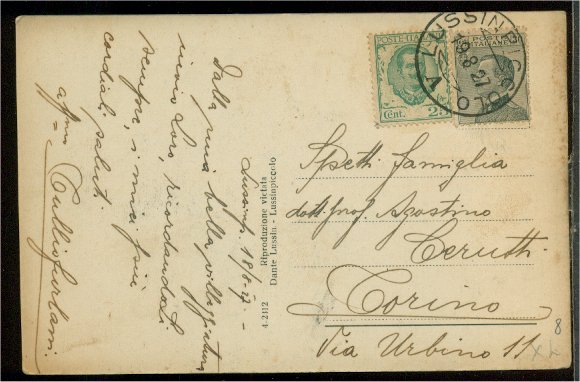 Lussino, 18/8-27 -
Dalla mia bella villeggiatura
invio Loro, ricordandoli
sempre, i miei più
cordiali saluti
aff.mo
Riproduzione vietata
Dante Lussin - Lussinpiccolo
4-2112
LUSSINPICCOLO
19.8.27
POSTE ITALIANE
Cent. 25
POSTE ITALIANE
Spett. famiglia
dott. prof. Agostino
Cerutti
Torino
Via Urbino 11
8